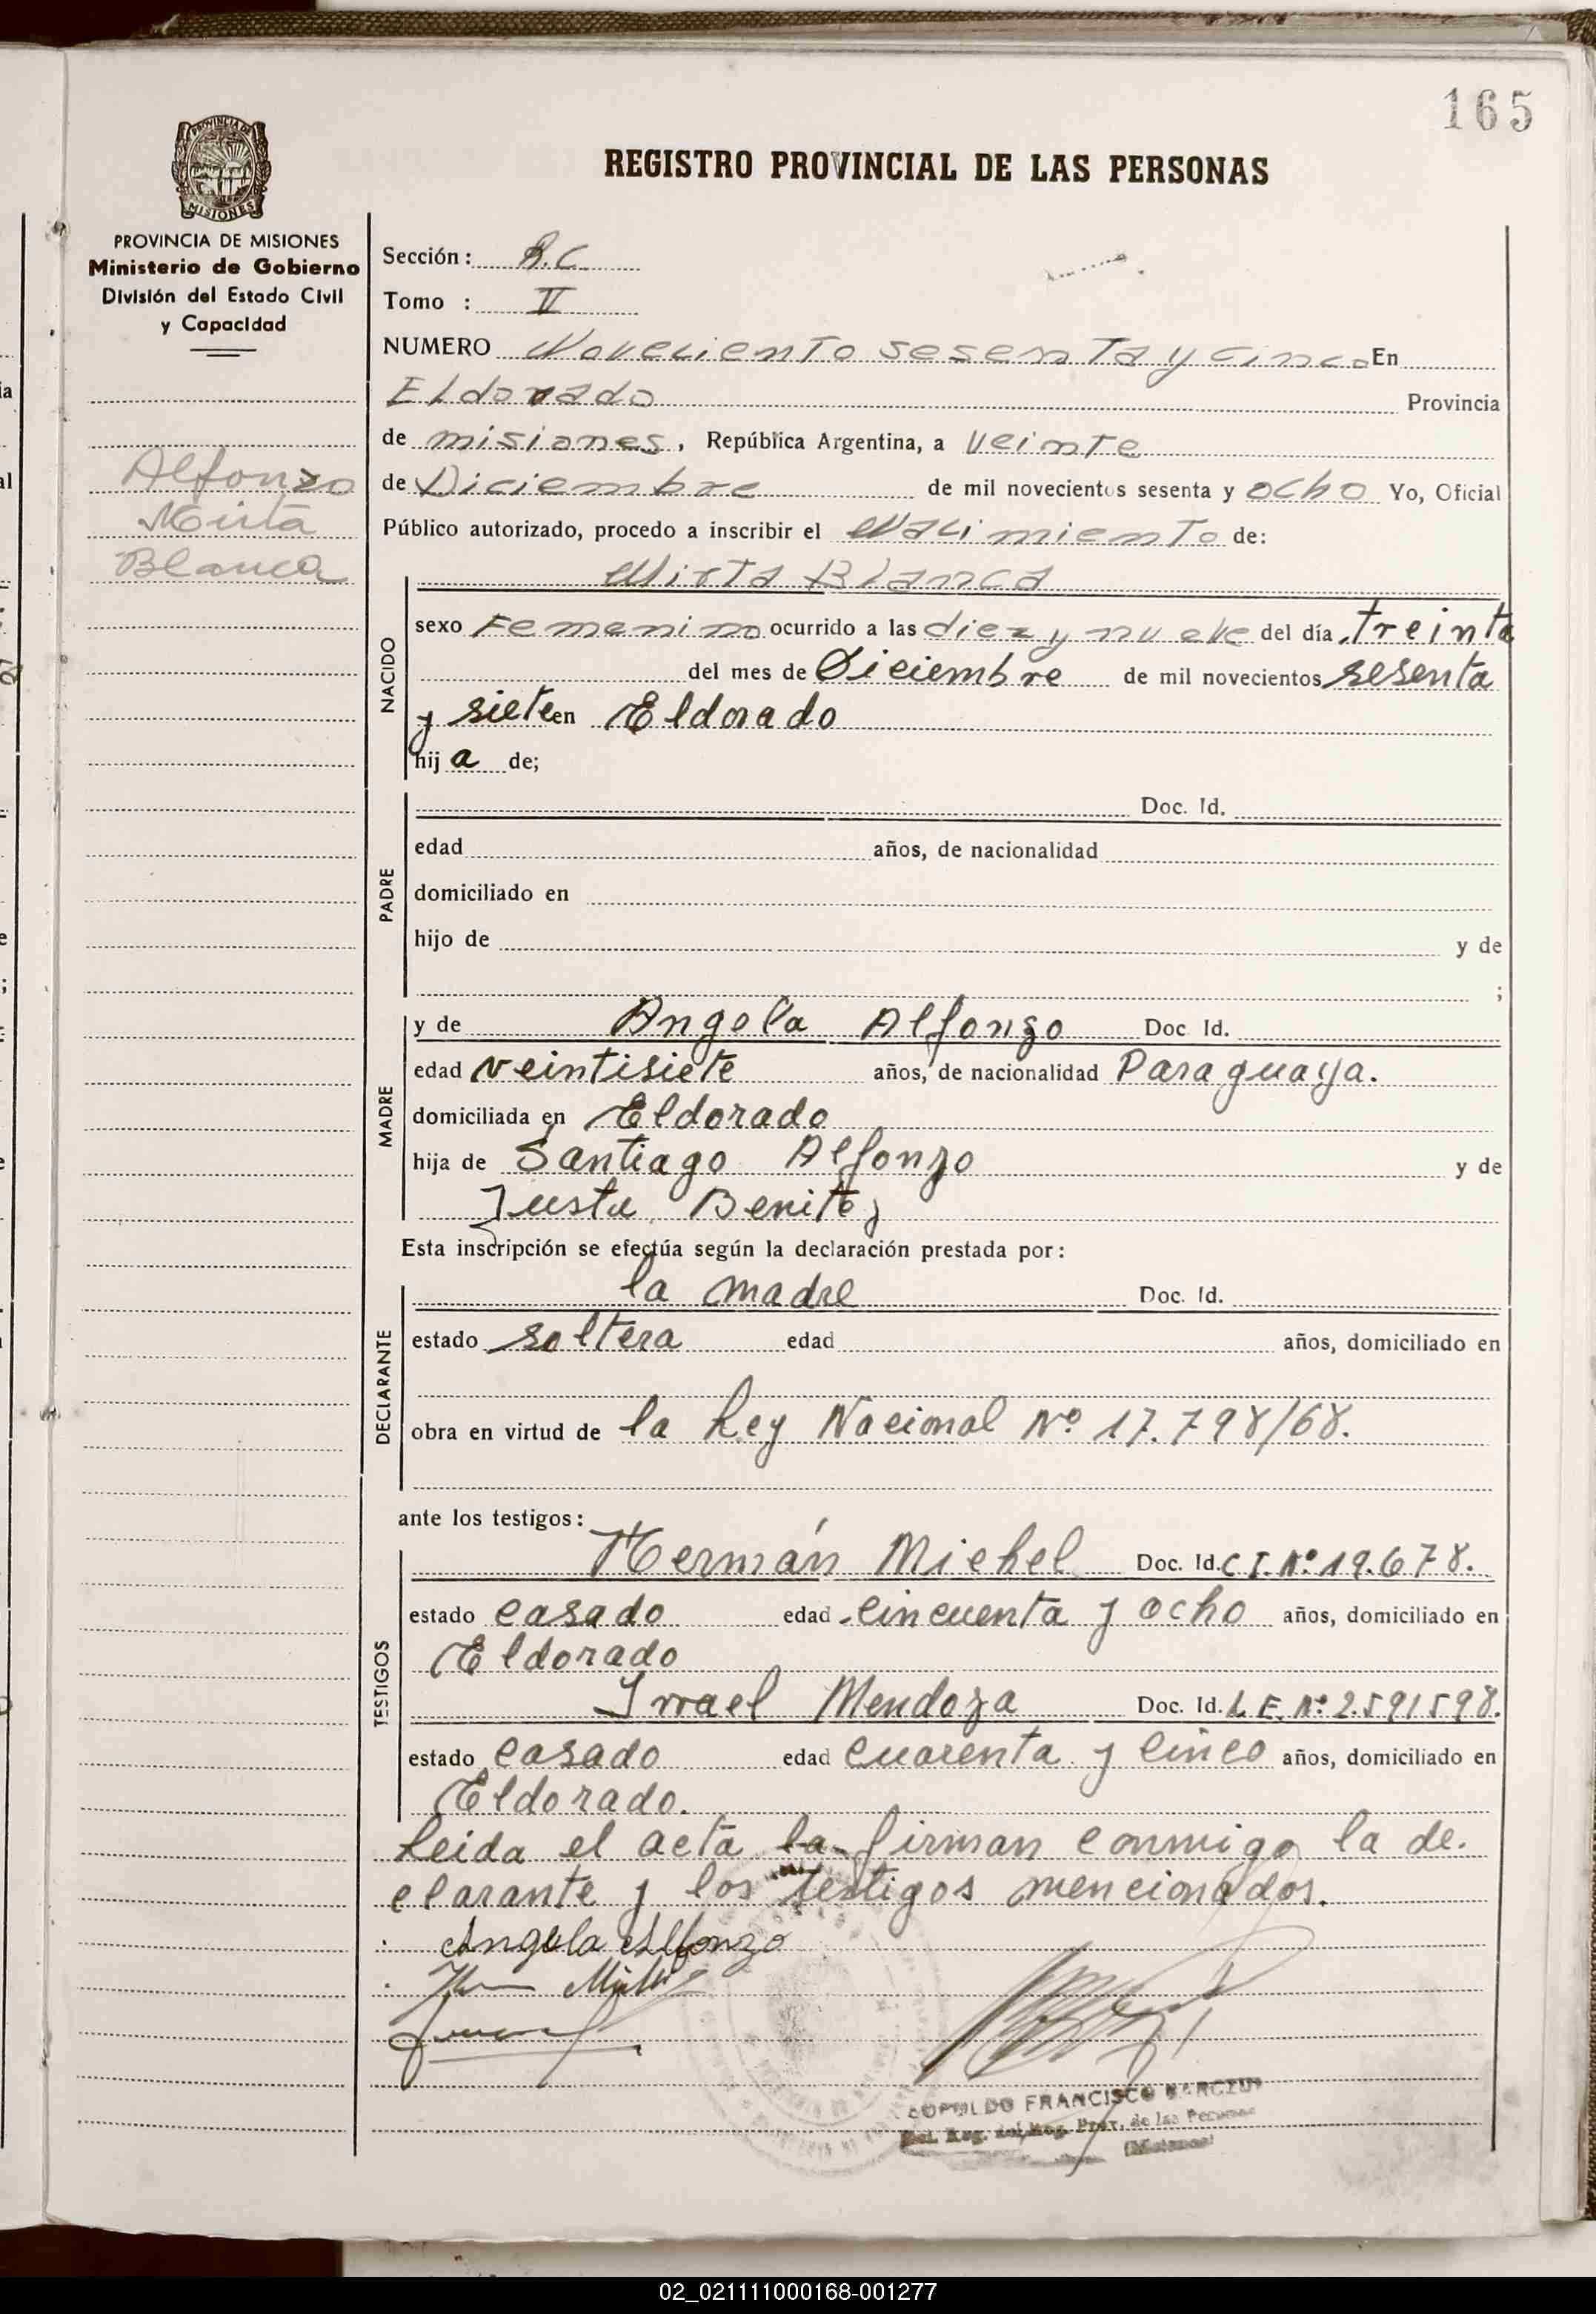 165
REGISTRO PROVINCIAL DE LAS PERSONAS
PROVINCIA DE MISIONES
MISIONES
PROVINCIA DE MISIONES
Ministerio de Gobierno
División del Estado Civil
y Capacidad
Alfonzo
Mirta
Blanca
Sección: B.C
Tomo :
NUMERO Noveciento sesenta y cinco En
Eldorado Provincia
de misiones, República Argentina, a veinte
de Diciembre de mil novecientos sesenta y ocho Yo, Oficial
Público autorizado, procedo a inscribir el Nacimiento de:
Mirta Blanca
NACIDO
sexo Femenino ocurrido a las diez y nueve del día treinta
del mes de Diciembre de mil novecientos sesenta
y siete en Eldorado
hija de;
PADRE
Doc. Id.
edad años, de nacionalidad
domiciliado en
hijo de y de
;
MADRE
y de Angela Alfonzo Doc Id.
edad veintisiete años, de nacionalidad Paraguaya.
domiciliada en Eldorado
hija de Santiago Alfonzo y de
Justa Benitez
Esta inscripción se efectúa según la declaración prestada por:
DECLARANTE
la madre Doc. Id.
estado soltera edad años, domiciliado en
obra en virtud de la Ley Nacional Nº 17.798/68.
ante los testigos:
TESTIGOS
Hermán Michel Doc. Id. C I. Nº 19.678.
estado casado edad cincuenta y ocho años, domiciliado en
Eldorado
Mendoza Doc. Id. L E. Nº 2.591598.
estado casado edad cuarenta y cinco años, domiciliado en
Eldorado.
Leida el acta la firman conmigo la de-
clarante y los testigos mencionados.
Angela Alfonzo
FRANCISCO
de las Personas
02_021111000168-001277